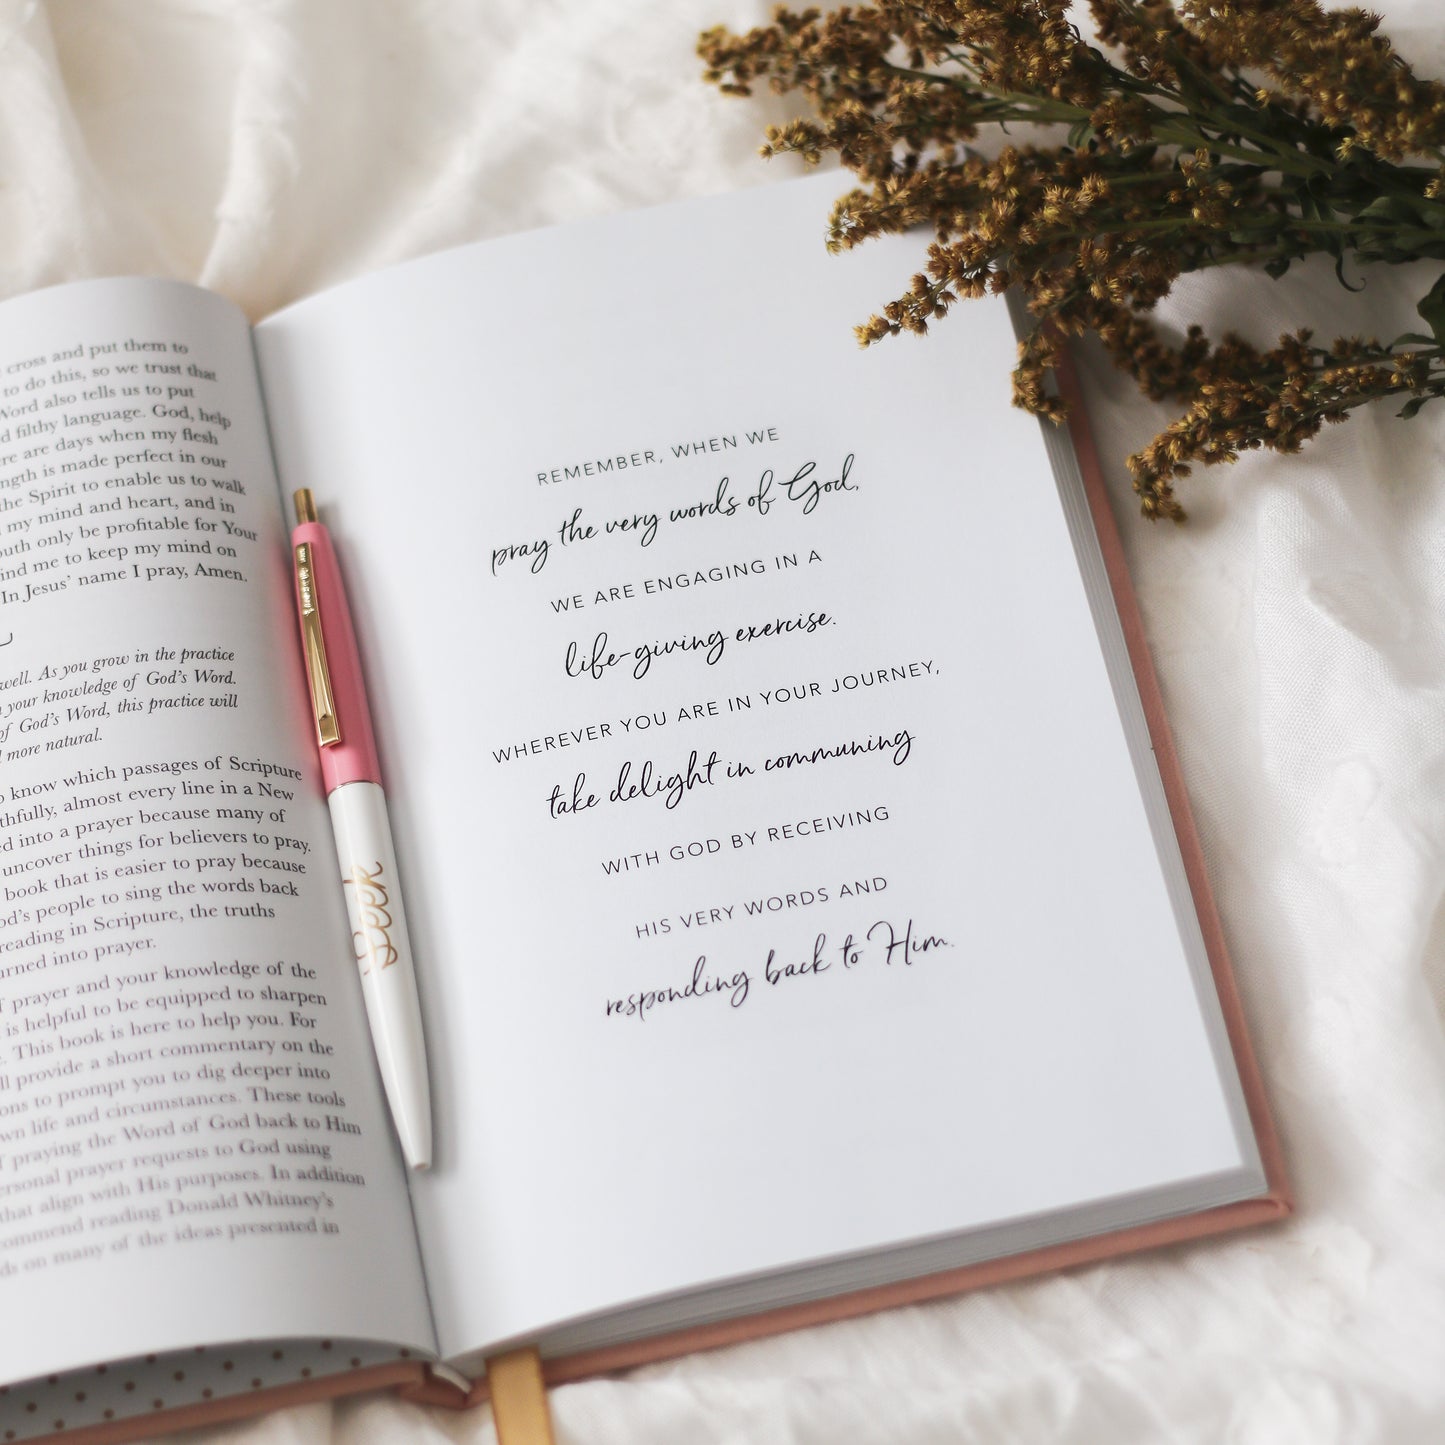 cross and put them to
to do this, so we trust that
Word also tells us to put
d filthy language. God, help
re are days when my flesh
ngth is made perfect in our
the Spirit to enable us to walk
my mind and heart, and in
outh only be profitable for Your
ind me to keep my mind on
In Jesus' name I pray, Amen.
well. As you grow in the practice
your knowledge of God's Word.
of God's Word, this practice will
more natural.
o know which passages of Scripture
thfully, almost every line in a New
ed into a prayer because many of
uncover things for believers to pray.
book that is easier to pray because
od's people to sing the words back
reading in Scripture, the truths
urned into prayer.
f prayer and your knowledge of the
is helpful to be equipped to sharpen
. This book is here to help you. For
ll provide a short commentary on the
ons to prompt you to dig deeper into
wn life and circumstances. These tools
f praying the Word of God back to Him
ersonal prayer requests to God using
that align with His purposes. In addition
ommend reading Donald Whitney's
ds on many of the ideas presented in
Seek
REMEMBER, WHEN WE
pray the very words of God,
WE ARE ENGAGING IN A
life-giving exercise.
WHEREVER YOU ARE IN YOUR JOURNEY,
take delight in communing
WITH GOD BY RECEIVING
HIS VERY WORDS AND
responding back to Him.